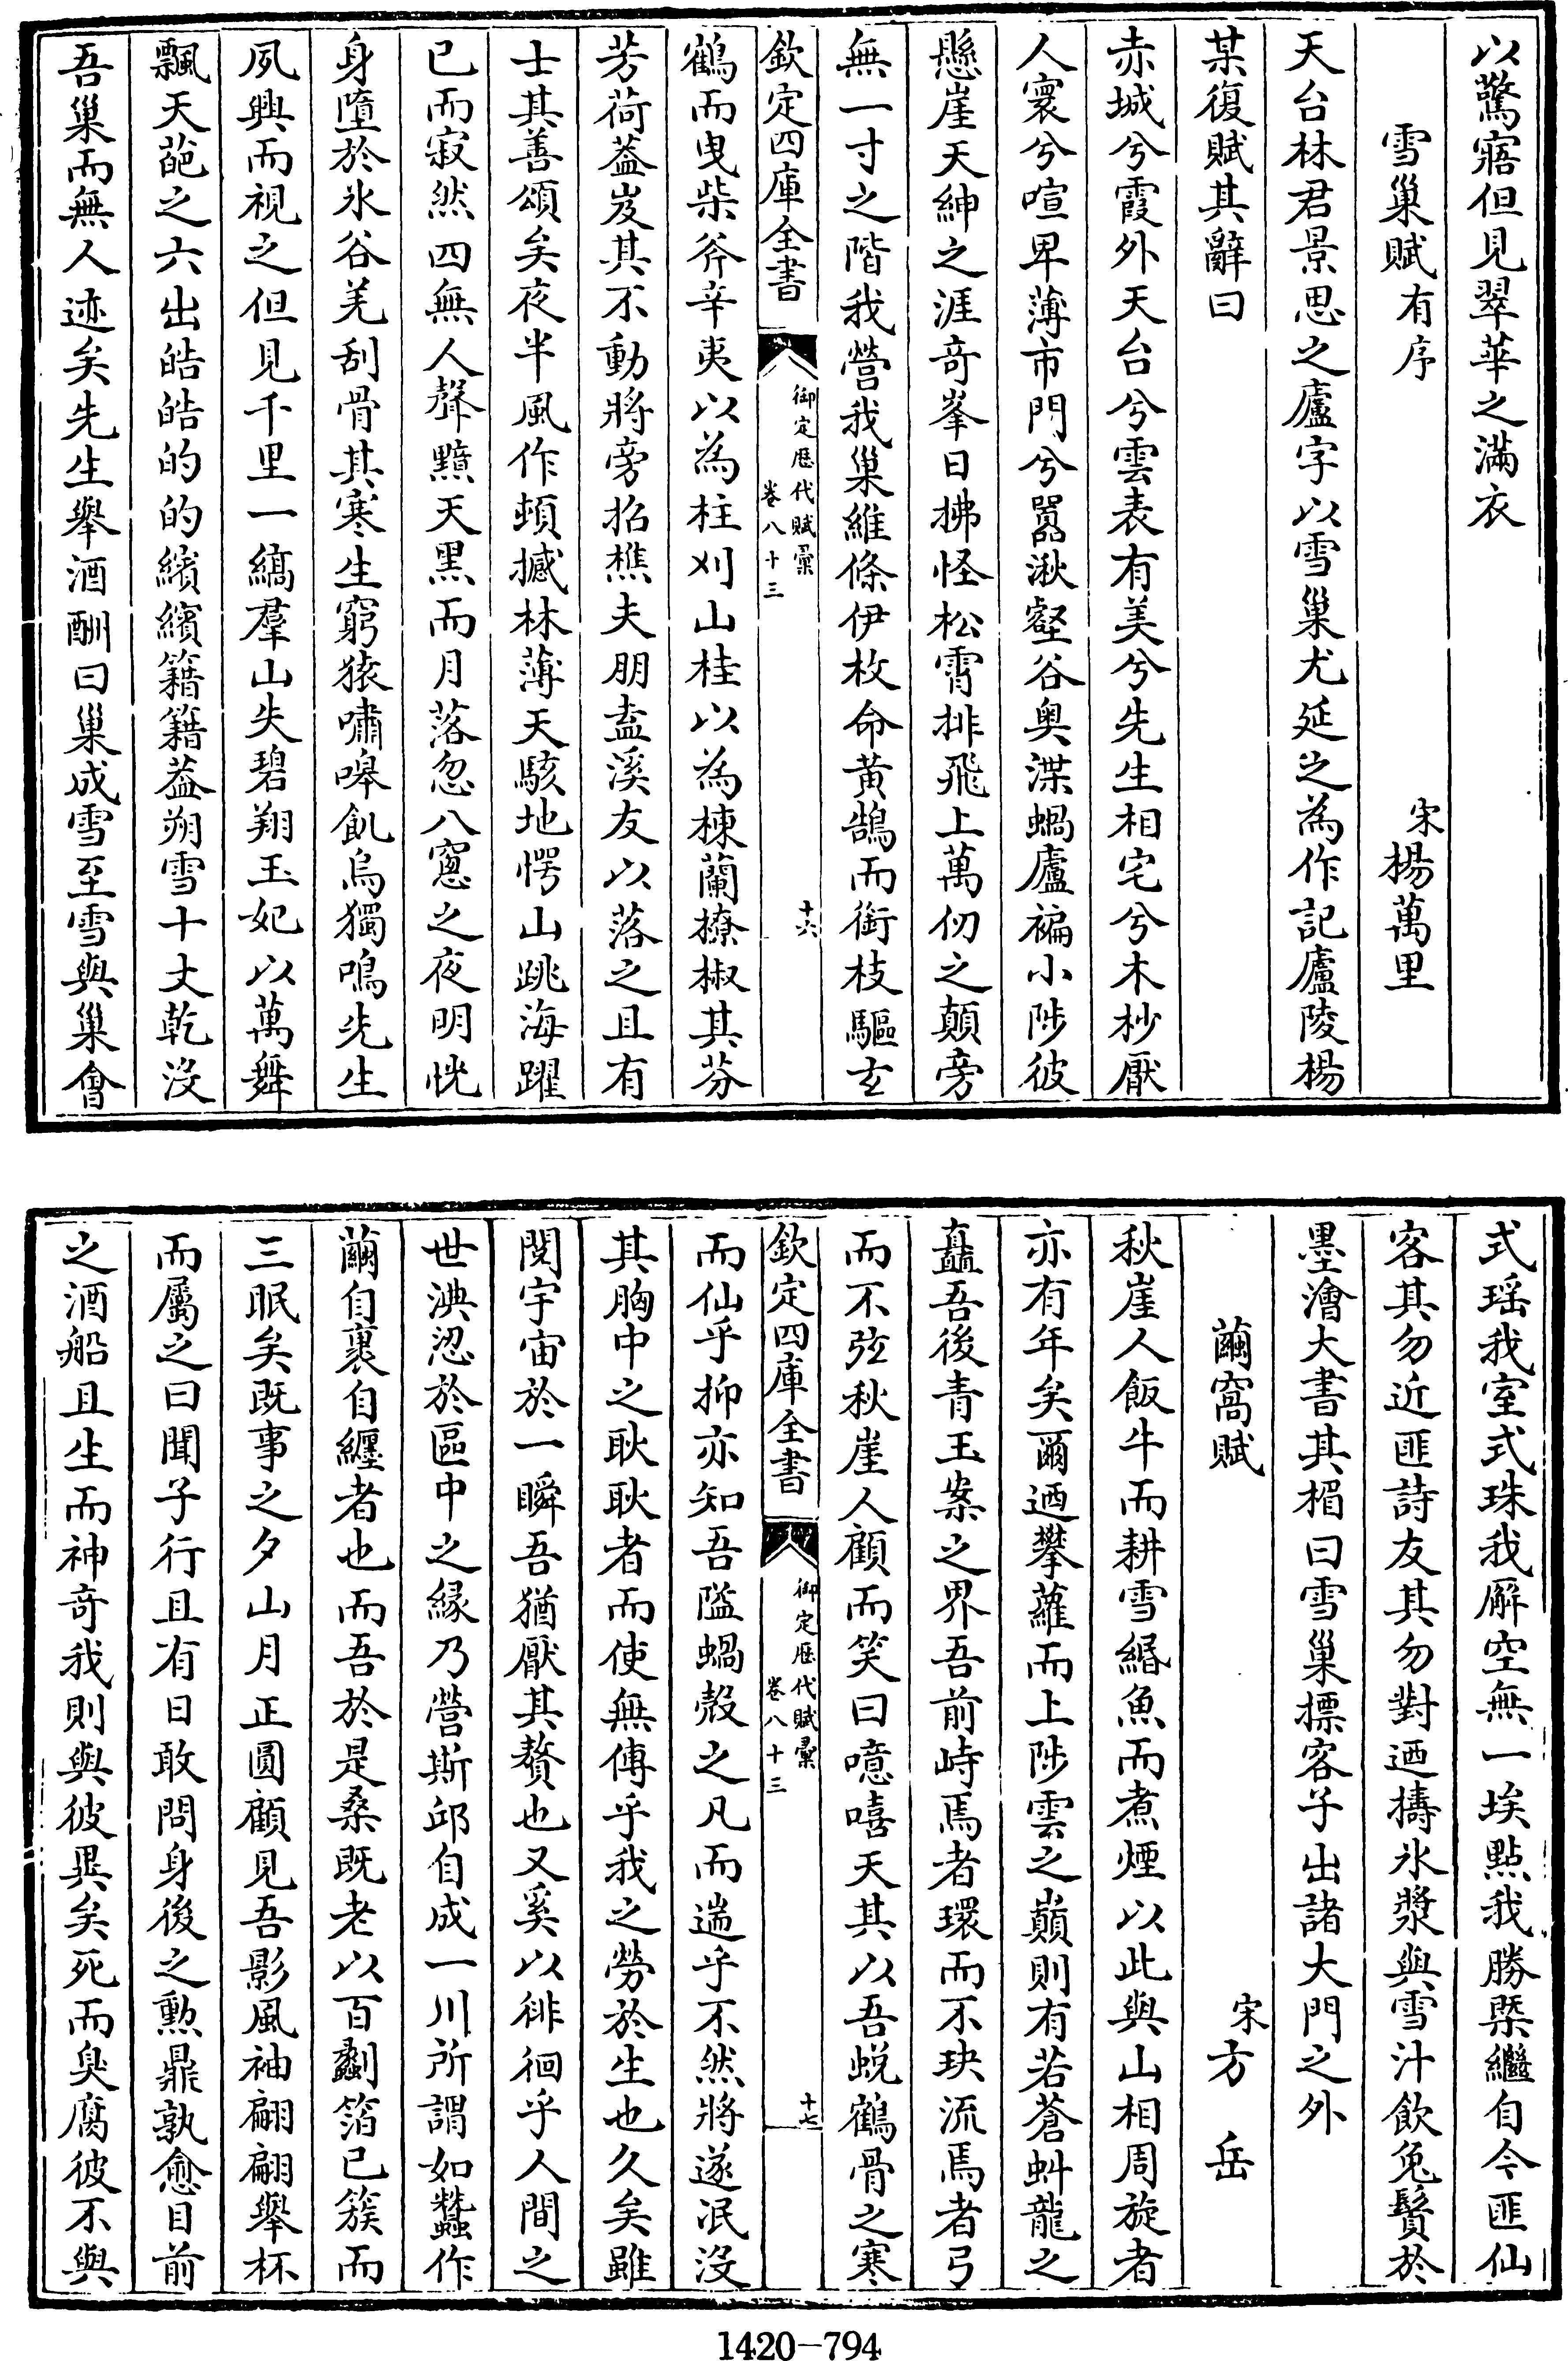 以驚寤但見翠華之滿衣
雪巢賦有序
宋楊萬里
天台林君景思之廬字以雪巢尤延之為作記廬陵楊
某復賦其辭曰
赤城兮霞外天台兮雲表有美兮先生相宅兮木杪厭
人寰兮喧卑薄市門兮囂湫壑谷奥渫蝸廬褊小陟彼
懸崖天紳之涯奇峯日拂怪松霄排飛上萬仞之顛旁
無一寸之階我營我巢維條伊枚命黄鵠而銜枝驅玄
欽定四庫全書
御定歷代賦彙
卷八十三
十六
鶴而曳柴斧辛夷以為柱刈山桂以為棟蘭橑椒其芬
芳荷葢岌其不動將旁招樵夫朋盍溪友以落之且有
士其善頌矣夜半風作頓撼林薄天駭地愕山跳海躍
已而寂然四無人聲黯天黑而月落忽八窻之夜明恍
身墮於氷谷羌刮骨其寒生窮猿嘯嘷飢烏獨鳴先生
夙興而視之但見千里一縞羣山失碧翔玉妃以萬舞
飄天葩之六出皓皓的的繽繽籍籍葢朔雪十丈乾沒
吾巢而無人迹矣先生舉酒酬曰巢成雪至雪與巢會
式瑶我室式珠我廨空無一埃點我勝槩繼自今匪仙
客其勿近匪詩友其勿對迺擣氷漿與雪汁飲兔鬢於
墨澮大書其楣曰雪巢摽客子出諸大門之外
繭窩賦
宋方岳
秋崖人飯牛而耕雪緡魚而煮煙以此與山相周旋者
亦有年矣爾迺攀蘿而上陟雲之巔則有若蒼虯龍之
矗吾後青玉案之界吾前峙焉者環而不玦流焉者弓
而不弦秋崖人顧而笑曰噫嘻天其以吾蜕鶴骨之寒
欽定四庫全書
御定歷代賦彙
卷八十三
十七
而仙乎抑亦知吾隘蝸殻之凡而遄乎不然將遂泯沒
其胸中之耿耿者而使無傳乎我之勞於生也久矣雖
閱宇宙於一瞬吾猶厭其贅也又奚以徘徊乎人間之
世淟涊於區中之縁乃營斯邱自成一川所謂如蠶作
繭自裹自纒者也而吾於是桑既老以百蠫箔已簇而
三眠矣既事之夕山月正圓顧見吾影風袖翩翩舉杯
而屬之曰聞子行且有日敢問身後之勲鼎孰愈目前
之酒船且生而神奇我則與彼異矣死而臭腐彼不與
1420-794